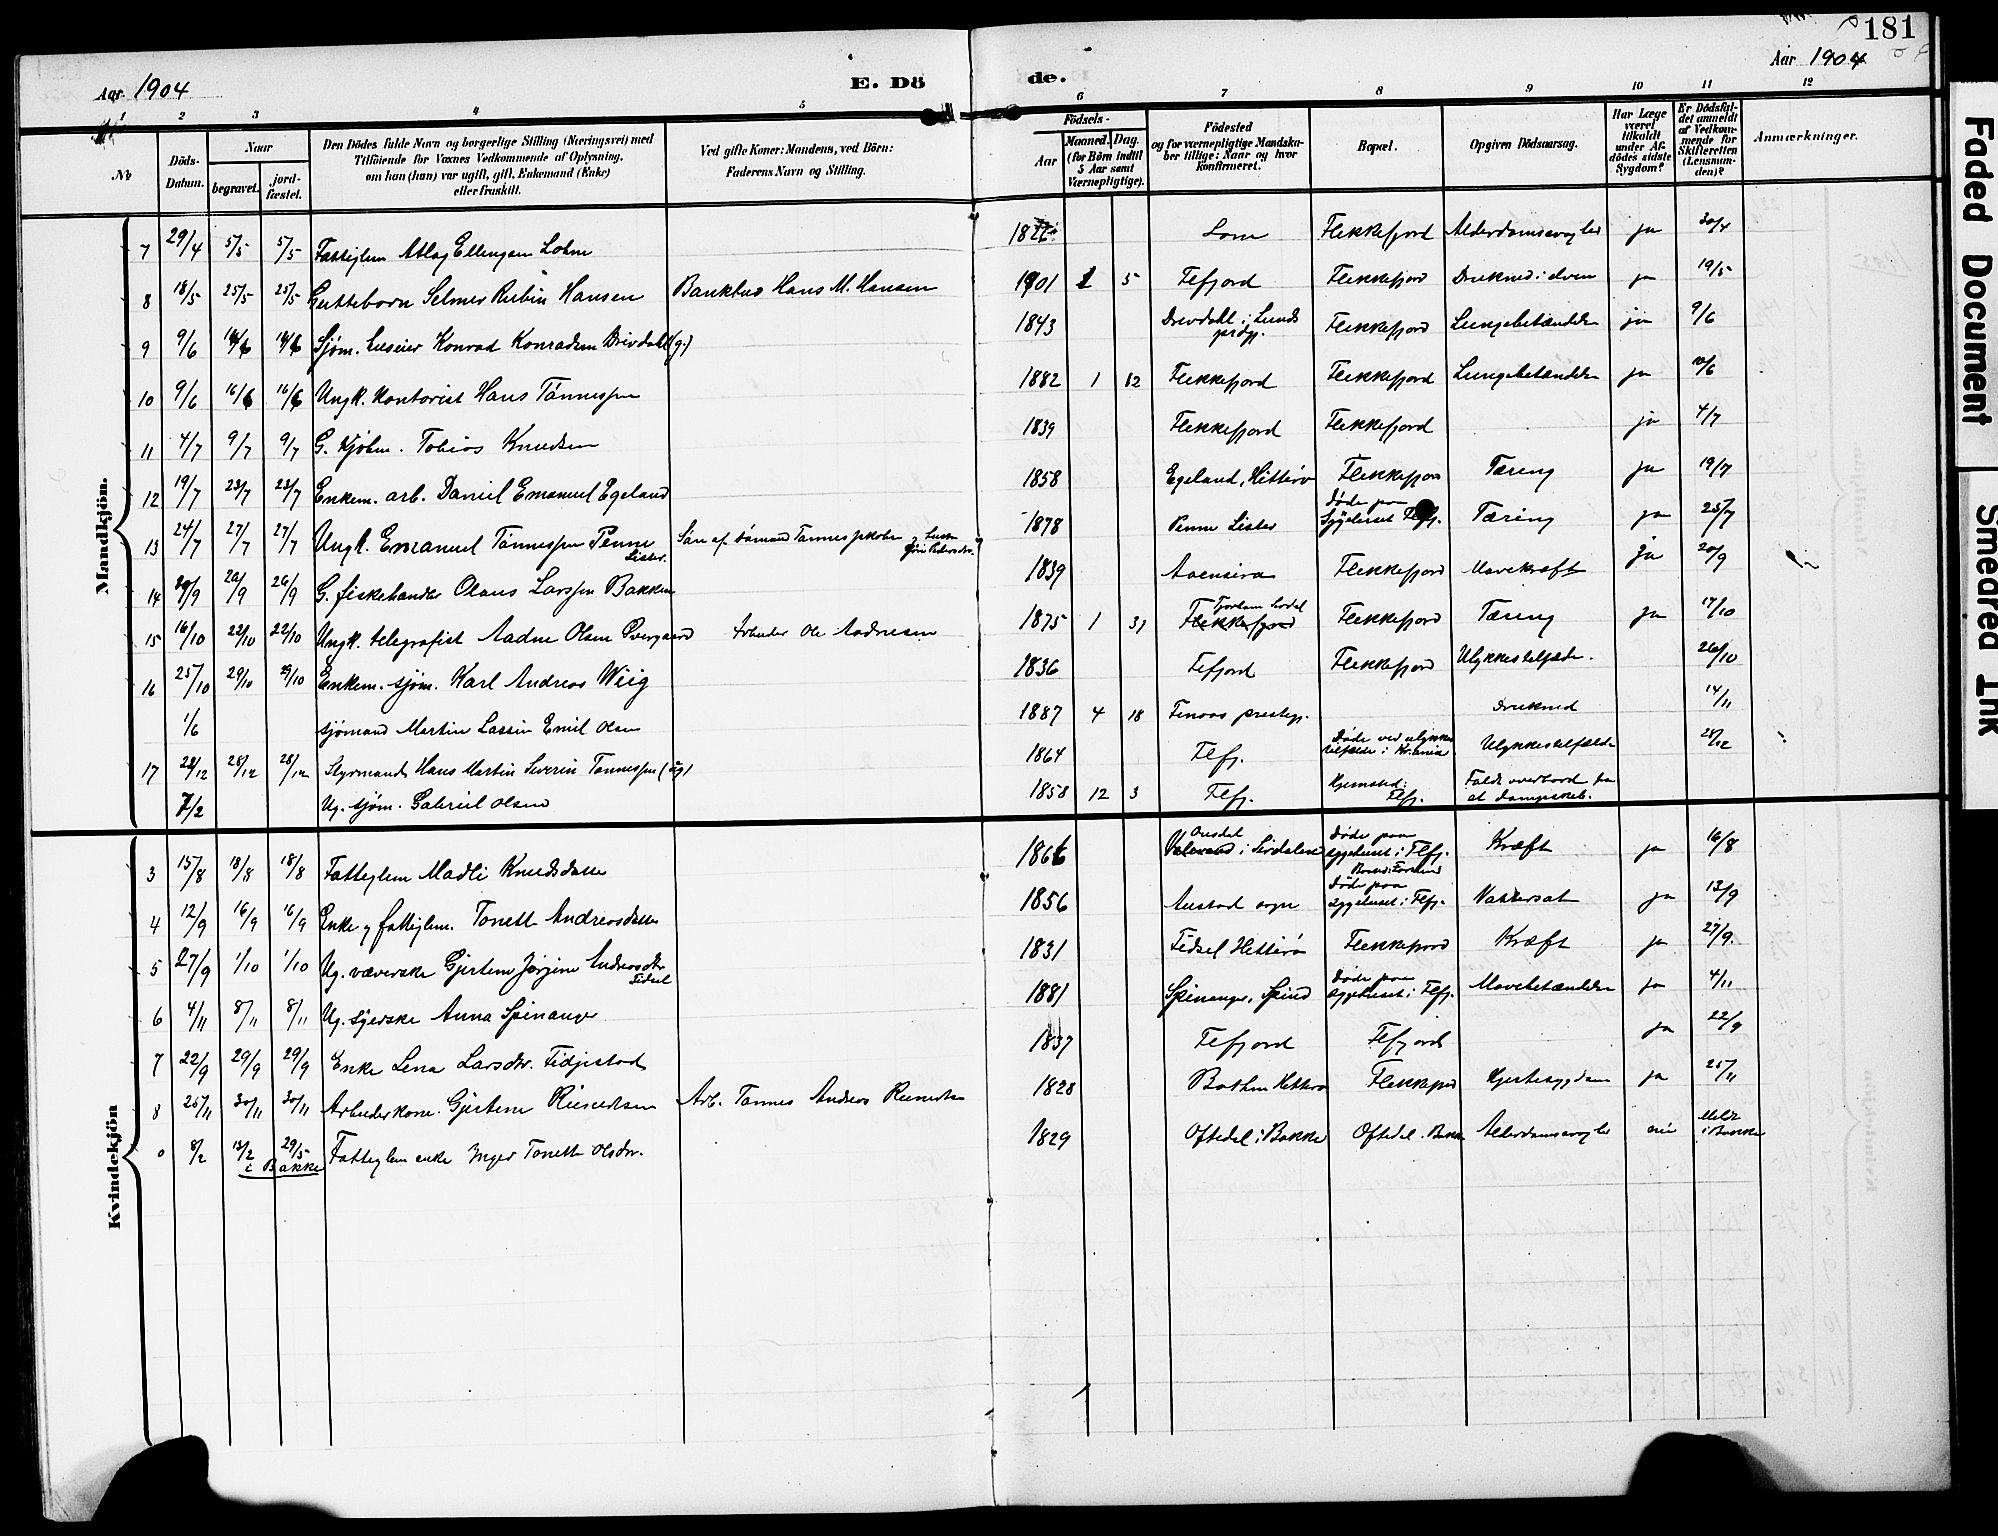 181
Aar 1904
E. Döde.
Aar 1904
1 2 3 4 5 6 7 8 9 10 11 12
No
Döds-Datum.
Naar
begravet.
jord-fæstet.
Den Dödes fulde Navn og borgerlige Stilling (Næringsvei) med
Tilföiende for Voxnes Vedkommende af Oplysning,
om han (hun) var ugift, gift, Enkemand (Enke)
eller fraskilt.
Ved gifte Koner: Mandens, ved Börn:
Faderens Navn og Stilling.
Födsels-
Aar
Maaned. Dag.
(for Börn indtil
5 Aar samt
Værnepligtige).
Födested
og for værnepligtige Mandska-
ber tillige: Naar og hvor
Konfirmeret.
Bopæl.
Opgiven Dödsaarsag.
Har Læge
været
tilkaldt
under Af-
dödes sidste
Sygdom?
Er Dödsfal-
det anmeldt
af Vedkom-
mende for
Skifteretten
(Lensman-
den)?
Anmærkninger.
Mandkjön.
7 29/4 5/5 5/5 Fattiglem Atlag Ellingsen Lohne Flekkefjord Alderdomssvaghed ja 30/4
8 18/5 25/5 25/5 Gutteborn Selmer Rubin Hansen Bankbud Hans M. Hansen 1901 1 5 Flfjord Flekkefjord Druknet i elven ja 19/5
9 9/6 Sjøm. Konrad Konradsen Drivdahl (g.) 1843 Drevdahl i Lunds prstgj. Flekkefjord Lungebetændelse ja 9/6
10 9/6 16/6 16/6 Ungk. kontorist Hans Tønnessen 1882 1 12 Flekkefjord Flekkefjord Lungebetændelse ja 10/6
11 4/7 9/7 9/7 G. kjøbm. Tobias Knudsen 1839 Flekkefjord Flekkefjord ja 4/7
12 19/7 23/7 23/7 Enkem. arb. Daniel Emanuel Egeland 1858 Egeland, Hitterø Flekkefjord Tæring ja 19/7
13 24/7 27/7 27/7 Ungk. Emanuel Tønnessen Penne Lister. Søn af sømand Tønnes Jakobsen 1878 Penne Lister Døde paa Sygehuset Flfj. Tæring ja 25/7
14 20/9 26/9 26/9 G. fiskehandler Olaus Larssen Bakken 1839 Aaensira Flekkefjord Mavekræft ja 20/9
15 16/10 22/10 22/10 Ungk. telegrafist Aadne Olsen Øvergaard Arbeider Ole Aadnesen 1875 1 31 Flekkefjord Tjorhom Sirdal Flekkefjord Tæring ja 17/10
16 25/10 29/10 29/10 Enkem. sjøm. Karl Andreas Wiig 1836 Flfjord Flekkefjord Ulykkestilfælde. 26/10
1/6 sjømand Martin Lassin Emil Olsen 1887 4 18 Finaas prestegj. Drukned 14/11
17 28/12 28/12 Styrmand Hans Martin Severin Tønnessen (ug) 1864 Flfj. Døde ved ulykkestilfælde i Kr.ania Ulykkestilfælde
7/2 Ug. sjøm. Gabriel Olsen 1858 12 3 Flfj. Hjemsted: Flfj. Faldt overbord fra et dampskib.
Kvindekjön
3 15/8 18/8 18/8 Fattiglem Madli Knudsdatter 1866 Ousdal i Sirdalen Døde paa sygehuset i Flfj. Kræft ja 16/8
4 12/9 16/9 16/9 Enke og fattiglem. Tonette Andreasdatter 1856 Austad sogn Døde paa sygehuset i Flfj. Vattersot ja 13/9
5 27/9 1/10 1/10 Ug. væverske Gjertine Jørgine Andreasdtr Fidsel 1831 Fidsel Hitterø Flekkefjord Kræft ja 27/9
6 4/11 8/11 8/11 Ug. syerske Anna Spinanger 1881 Spinanger, Spind Døde paa sygehuset i Flfj. Mavebetændelse ja 4/11
7 22/9 29/9 29/9 Enke Lena Larsdtr. Fidjestad 1837 Flfjord Flfjord ja 22/9
8 25/11 30/11 30/11 Arbeiderkone. Gjertine Reinertsen Arb. Tønnes Andreas Reinertsen 1828 Hitterø Flekkefjord Hjertesygdom ja 25/11
0 8/2 13/2 29/5 i Bakke Fattiglem enke Inger Tonette Olsdtr. 1829 Oftedal i Bakke Oftedal. Bakke Alderdomssvaghed nei Meldt i Bakke
Faded Document
Smeared Ink